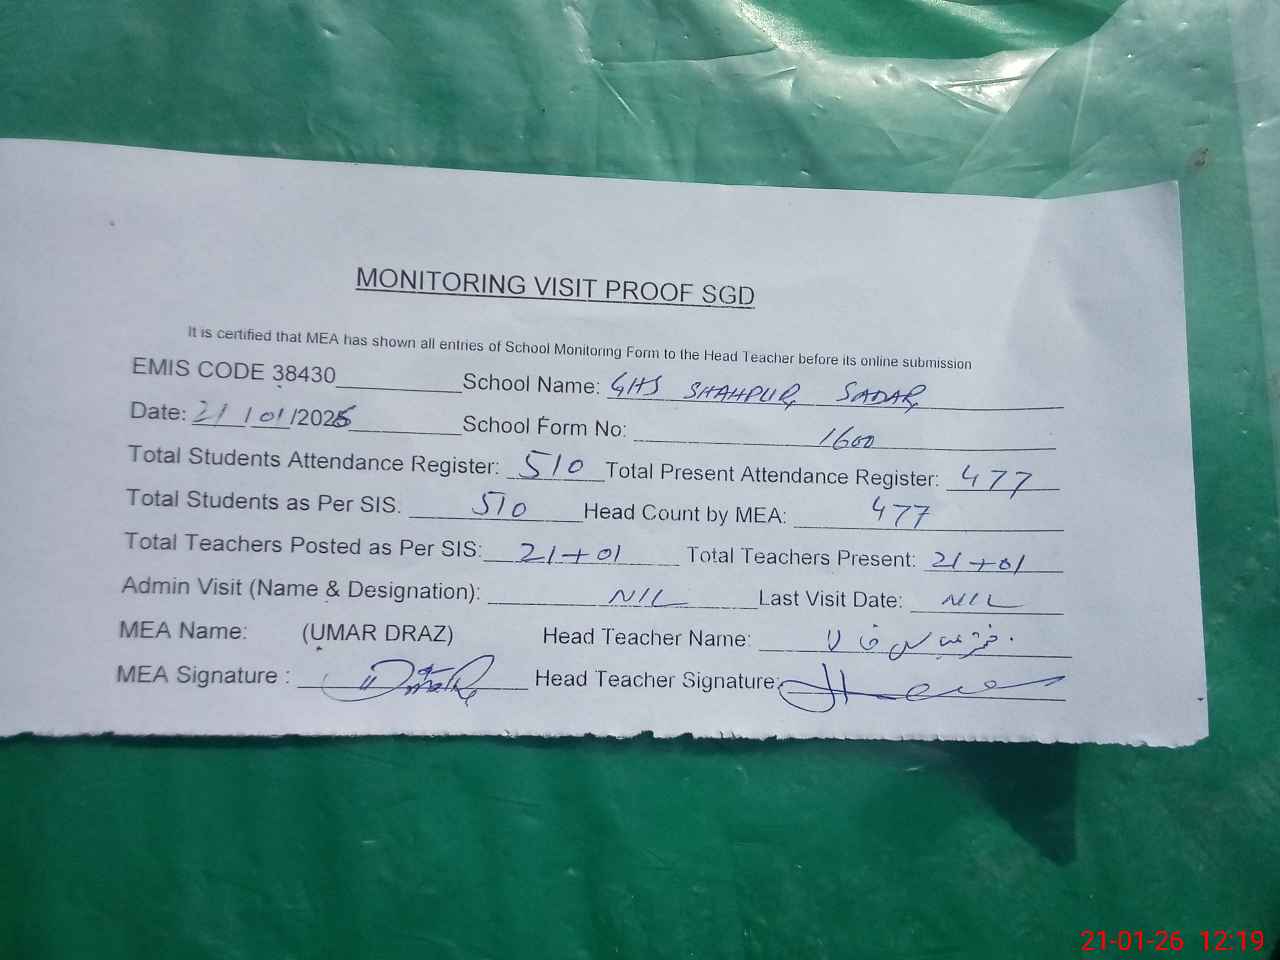 MONITORING VISIT PROOF SGD
It is certified that MEA has shown all entries of School Monitoring Form to the Head Teacher before its online submission
EMIS CODE 38430 School Name: GHS SHAHPUR SADAR
Date: 21/01/2026 School Form No: 1600
Total Students Attendance Register: 510 Total Present Attendance Register: 477
Total Students as Per SIS. 510 Head Count by MEA: 477
Total Teachers Posted as Per SIS: 21+01 Total Teachers Present: 21+01
Admin Visit (Name & Designation): NIL Last Visit Date: NIL
MEA Name: (UMAR DRAZ) Head Teacher Name:
MEA Signature : Head Teacher Signature:
21-01-26 12:19